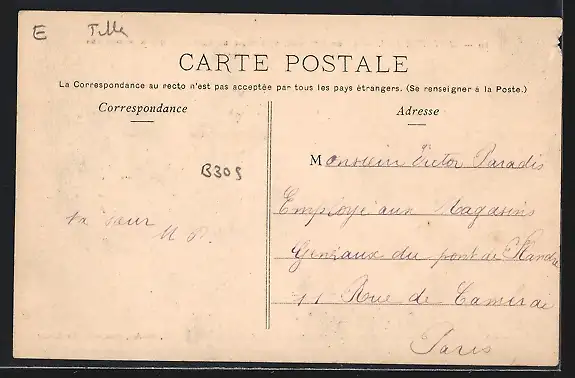 E Tille
CARTE POSTALE
La Correspondance au recto n'est pas acceptée par tous les pays étrangers. (Se renseigner à la Poste.)
Correspondance
Adresse
B309
ta sœur
M P.
Monsieur Victor Paradis
Employé aux Magasins
Généraux du pont de Flandre
11 Rue de Cambrai
Paris